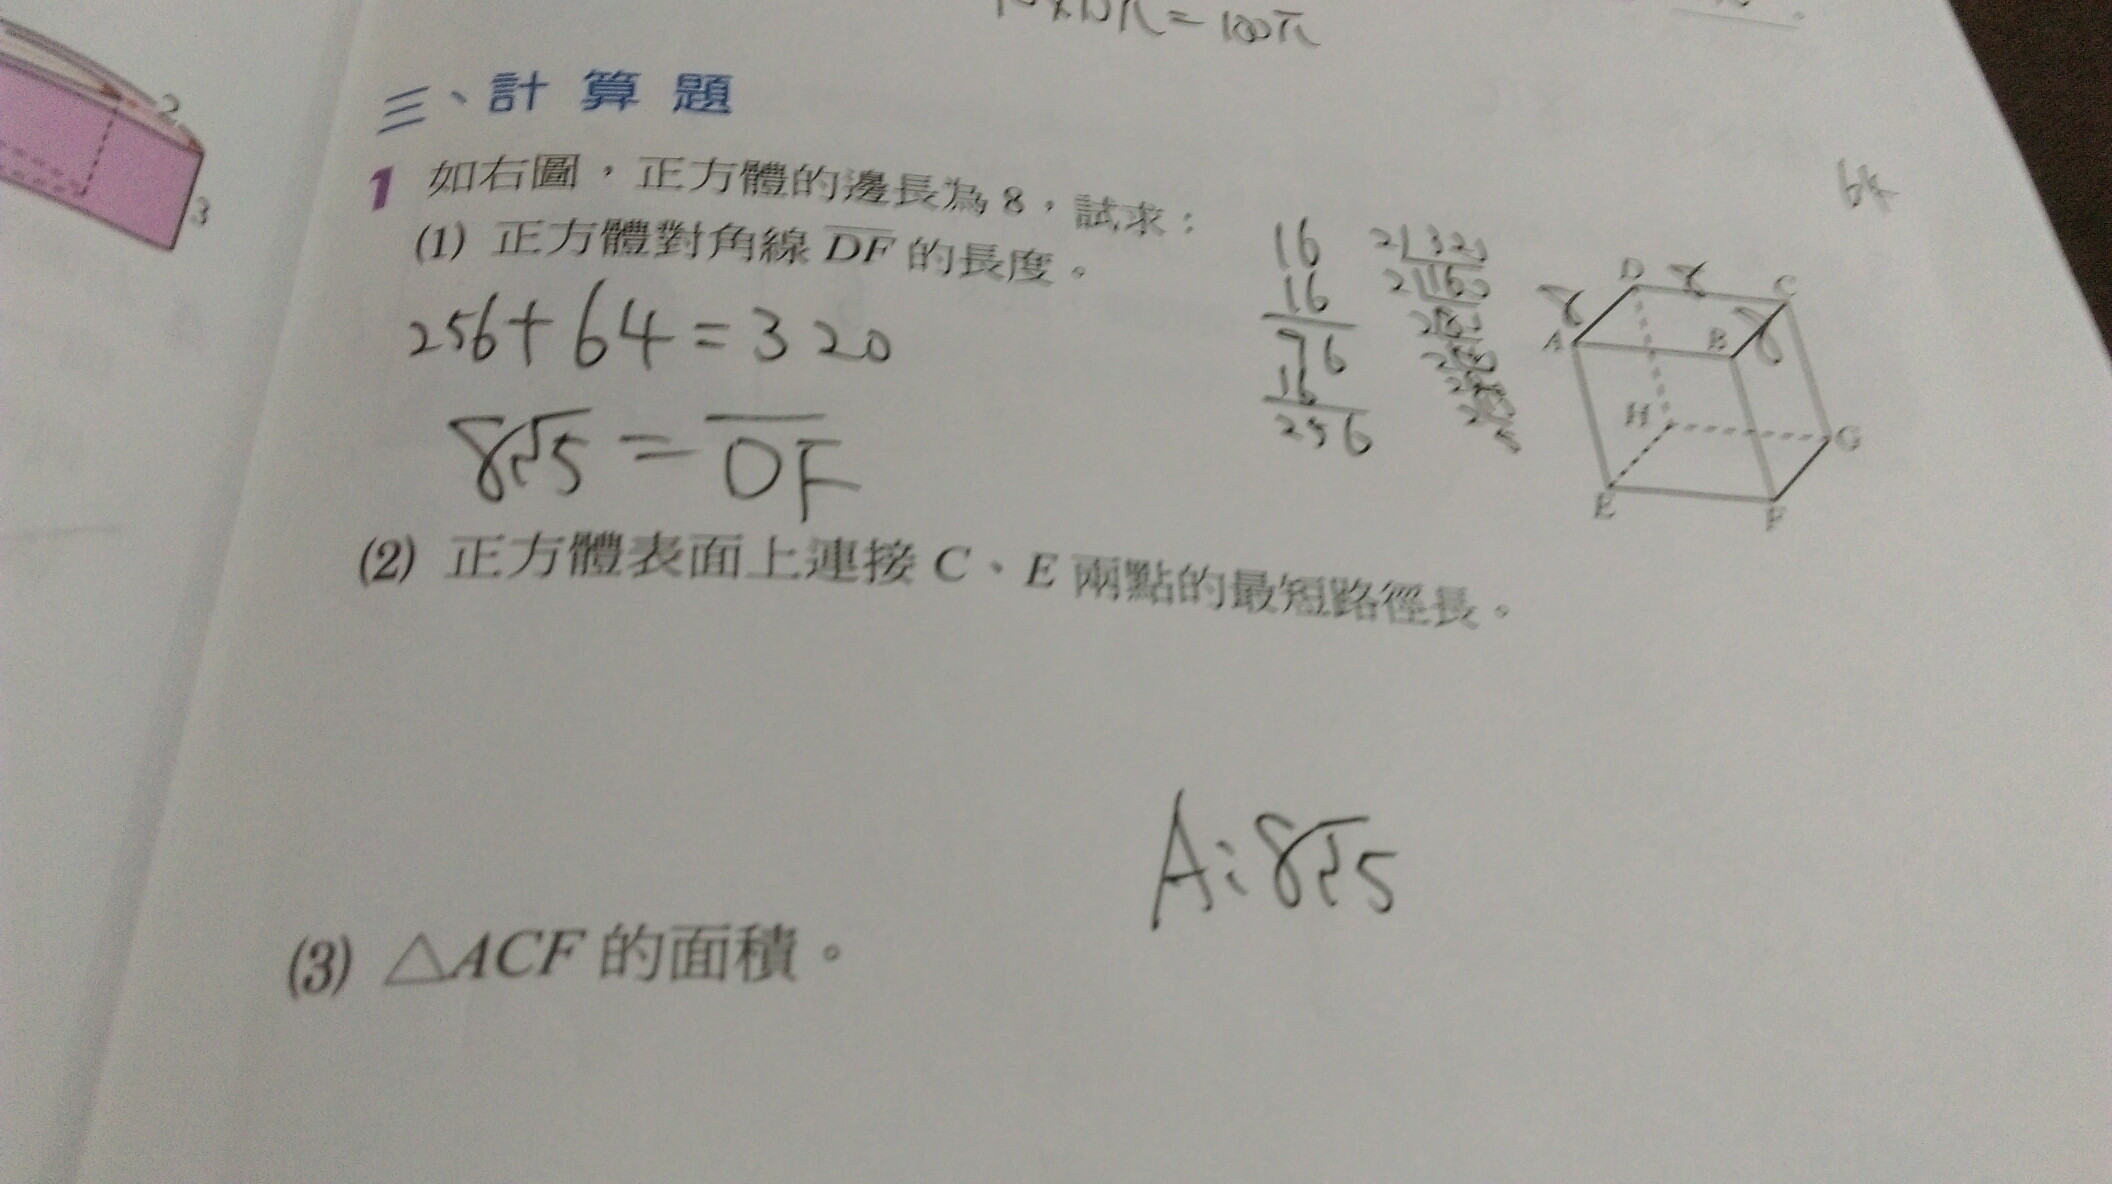 =100π
三、計算題
1 如右圖，正方體的邊長為8，試求：
(1) 正方體對角線DF的長度。
256+64=320
8√5=DF
16
16
76
16
256
2|320
2|160
64
D 8 C
8 8
A B
H G
E F
(2) 正方體表面上連接C、E兩點的最短路徑長。
A:8√5
(3) △ACF的面積。
2
3